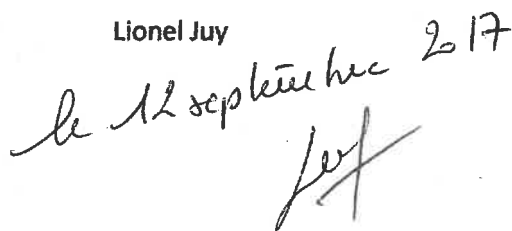 Lionel Juy
le 12 septembre 2017